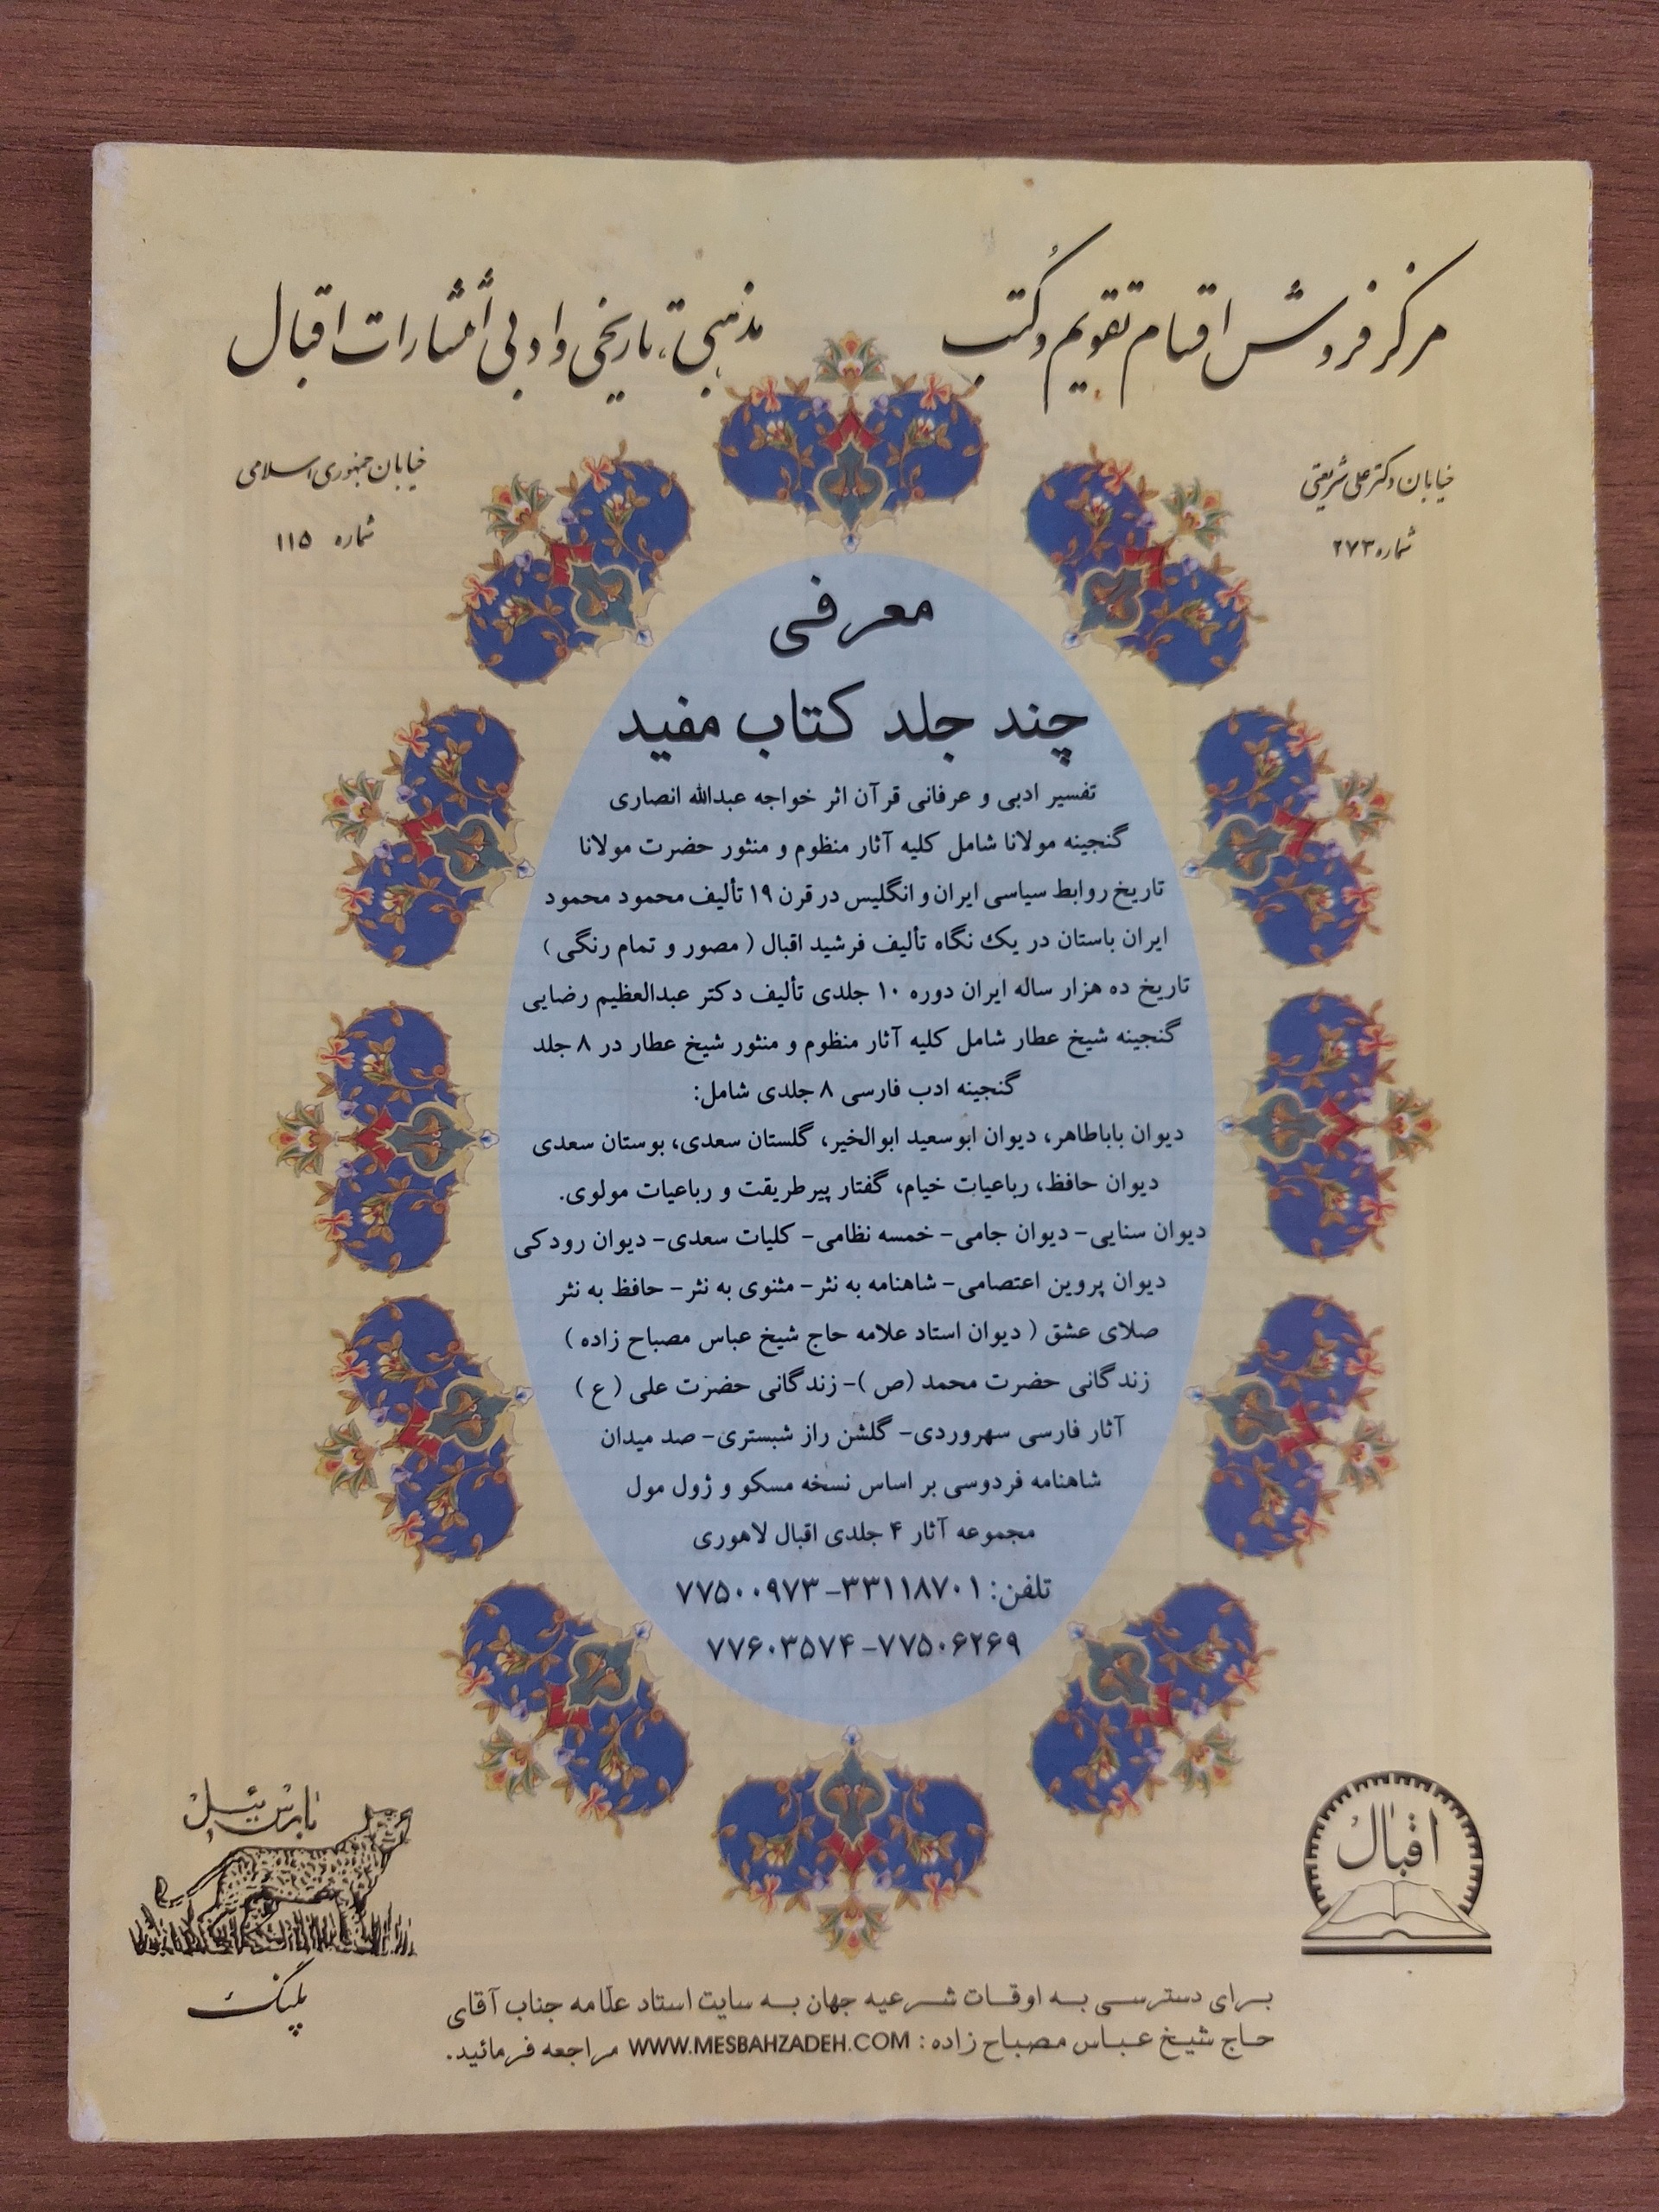 مرکز فروش اقسام تقویم و کتب
مذهبی، تاریخی و ادبی انتشارات اقبال
خیابان دکتر علی شریعتی
شماره ۲۷۳
خیابان جمهوری اسلامی
شماره ۱۱۵
معرفی
چند جلد کتاب مفید
تفسیر ادبی و عرفانی قرآن اثر خواجه عبدالله انصاری
گنجینه مولانا شامل کلیه آثار منظوم و منثور حضرت مولانا
تاریخ روابط سیاسی ایران و انگلیس در قرن ۱۹ تألیف محمود محمود
ایران باستان در یک نگاه تألیف فرشید اقبال ( مصور و تمام رنگی )
تاریخ ده هزار ساله ایران دوره ۱۰ جلدی تألیف دکتر عبدالعظیم رضایی
گنجینه شیخ عطار شامل کلیه آثار منظوم و منثور شیخ عطار در ۸ جلد
گنجینه ادب فارسی ۸ جلدی شامل:
دیوان باباطاهر، دیوان ابوسعید ابوالخیر، گلستان سعدی، بوستان سعدی
دیوان حافظ، رباعیات خیام، گفتار پیرطریقت و رباعیات مولوی.
دیوان سنایی- دیوان جامی- خمسه نظامی- کلیات سعدی- دیوان رودکی
دیوان پروین اعتصامی- شاهنامه به نثر- مثنوی به نثر- حافظ به نثر
صلای عشق ( دیوان استاد علامه حاج شیخ عباس مصباح زاده )
زندگانی حضرت محمد (ص )- زندگانی حضرت علی ( ع )
آثار فارسی سهروردی- گلشن راز شبستری- صد میدان
شاهنامه فردوسی بر اساس نسخه مسکو و ژول مول
مجموعه آثار ۴ جلدی اقبال لاهوری
تلفن: ۳۳۱۱۸۷۰۱-۷۷۵۰۰۹۷۳
۷۷۵۰۶۲۶۹-۷۷۶۰۳۵۷۴
اقبال
بارس ئیل
پلنگ
برای دسترسی به اوقات شرعیه جهان به سایت استاد علّامه جناب آقای
حاج شیخ عباس مصباح زاده : WWW.MESBAHZADEH.COM مراجعه فرمائید.